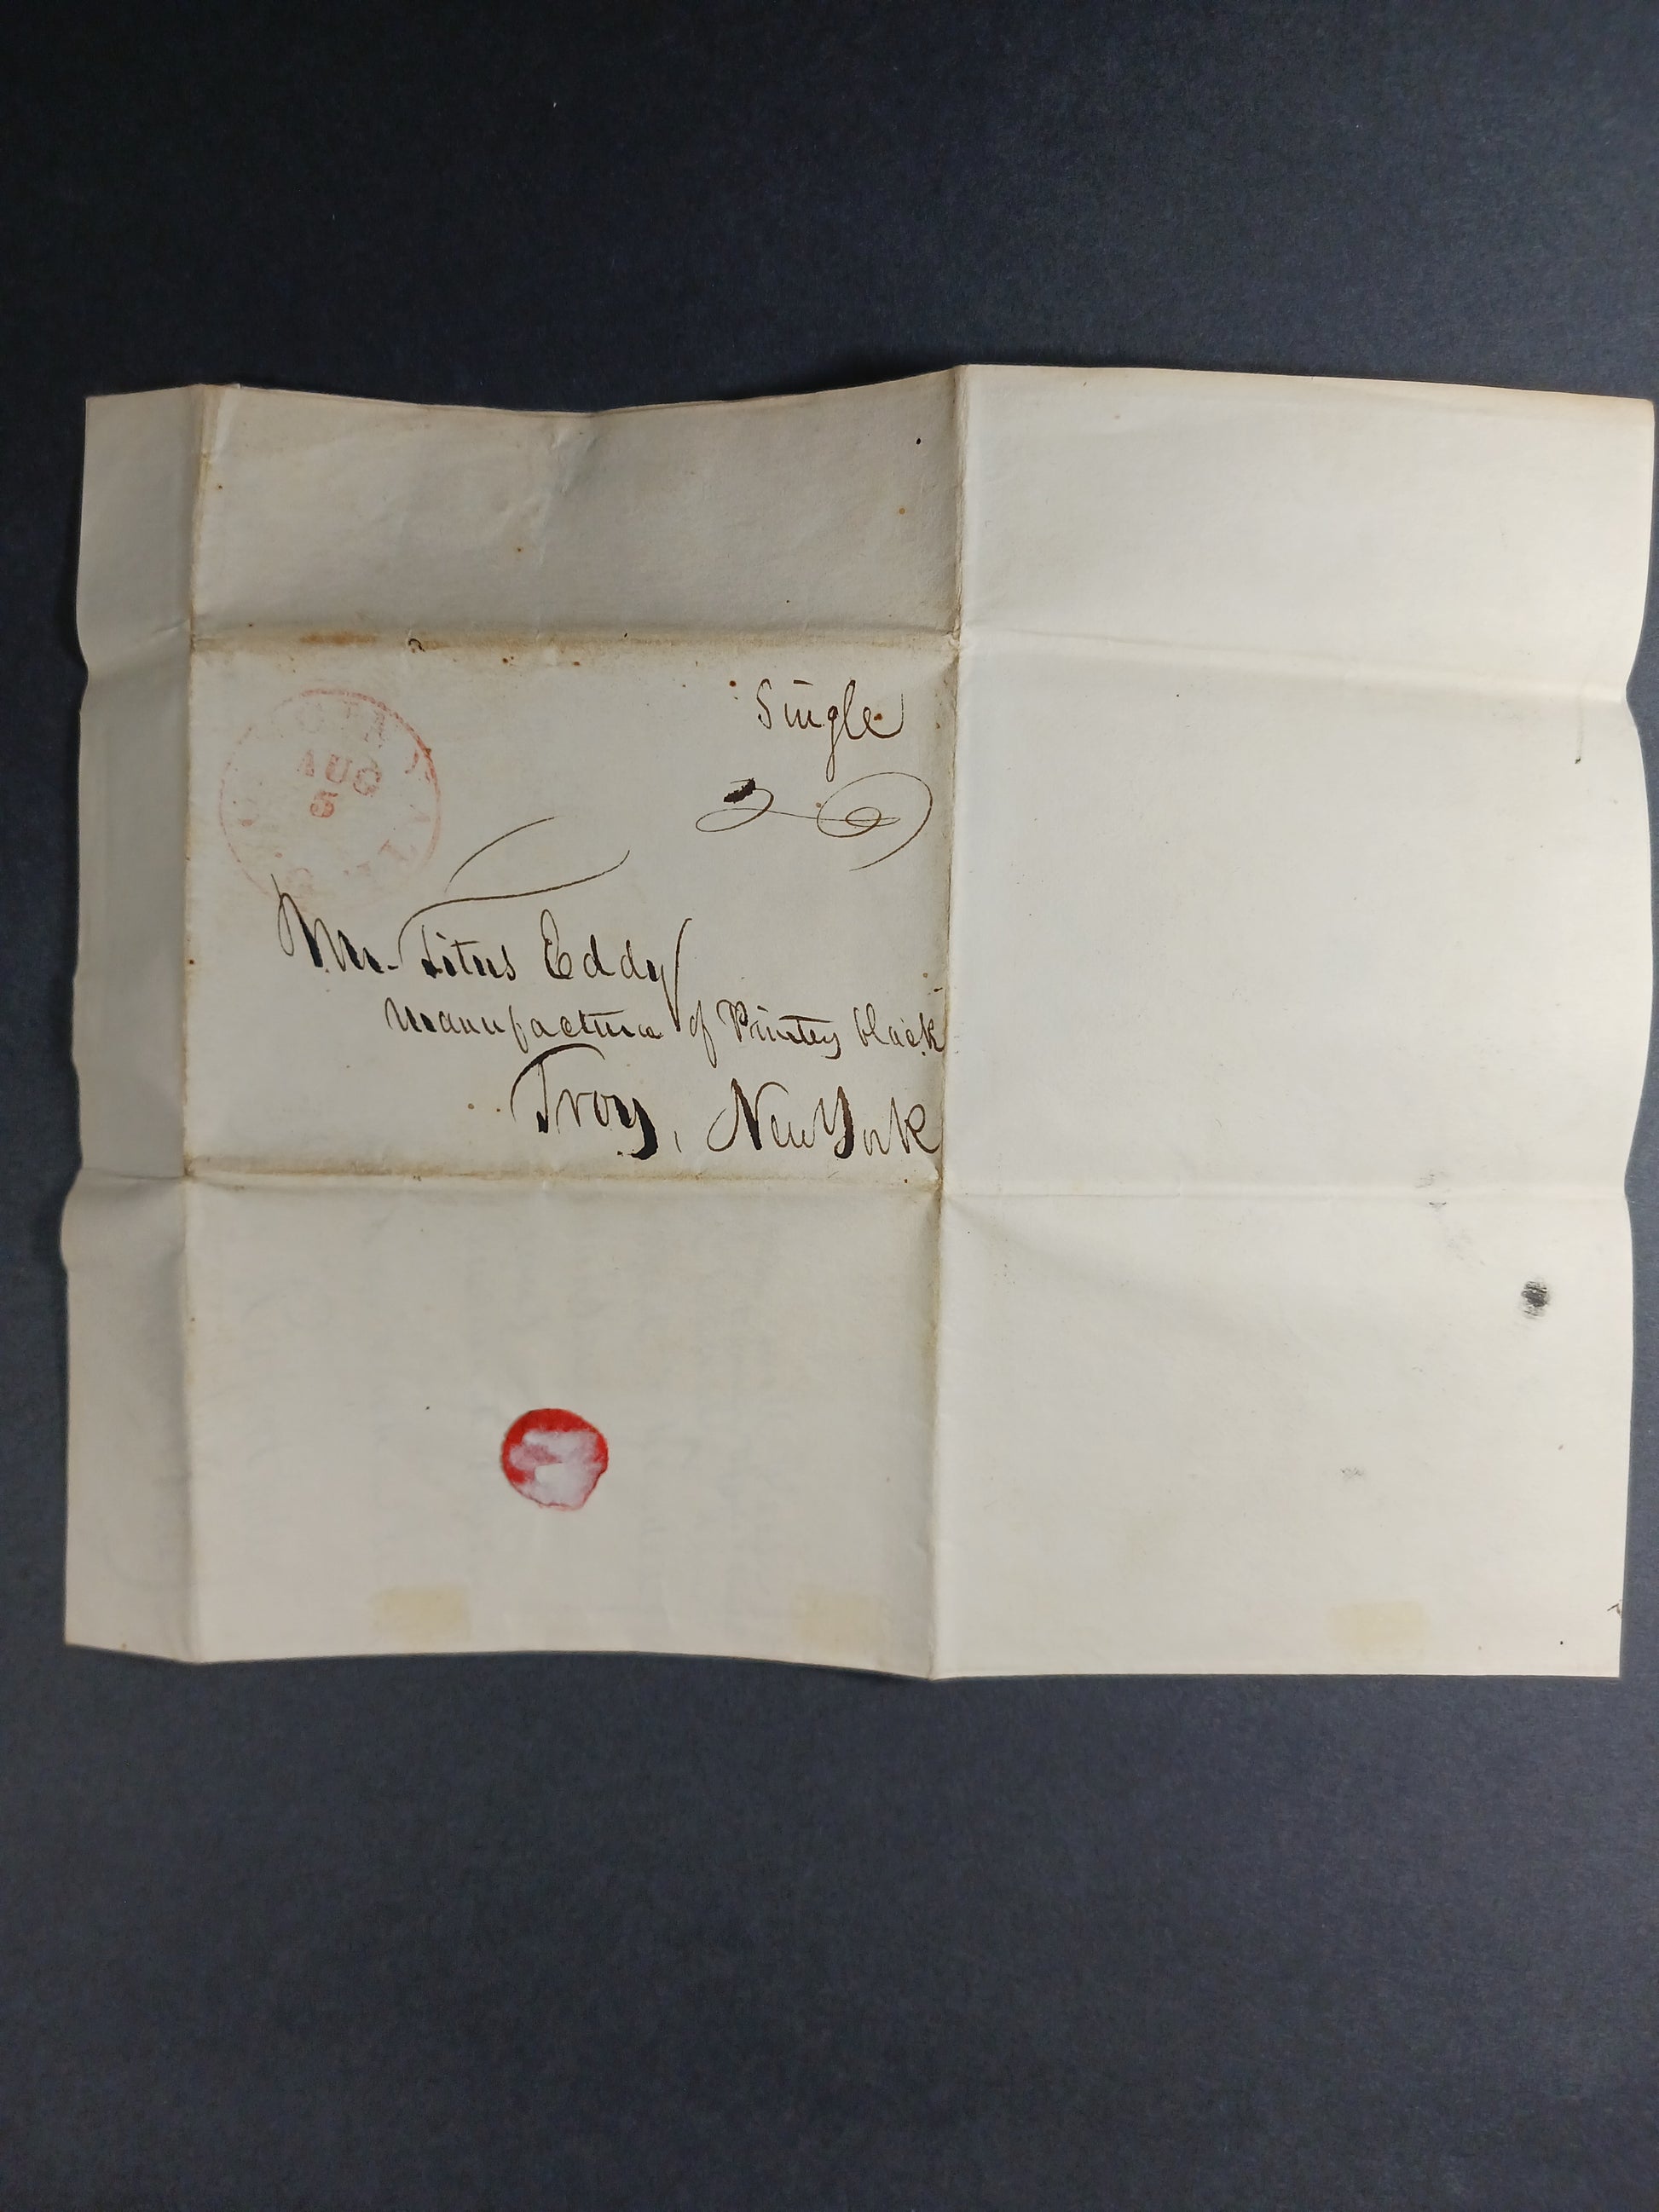 Single
AUG
5
Mr. Titus Eddy
Manufacturer of Printers black
Troy, New York